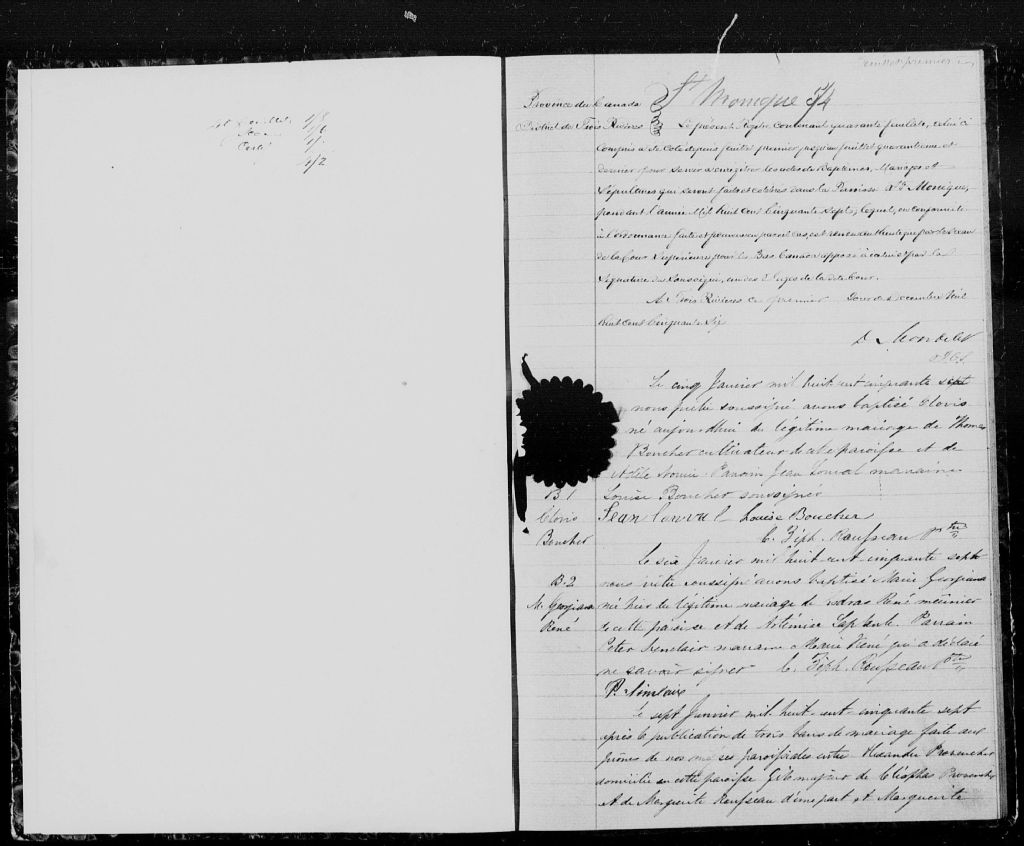 feuillet premier
Ste Monique 54
Province du Canada
District des Trois Rivières
Le présent Régitre contenant quarante feuillets, celui ci
compris a été coté depuis feuillet premier jusqu'au feuillet quarantieme et
dernier pour servir à enregitrer les actes de Baptêmes, Mariages et
Sépultures qui seront faits et célébrés dans la Paroisse de Ste Monique,
pendant l'année Mil huit cent Cinquante Sept; lequel, en conformité
à l'ordonnance faite et pourvue en pareil cas, est rendu authentique par le Sceau
de la Cour Supérieure pour le Bas Canada apposé à icelui et par la
Signature du Soussigné, un des Juges de la dite Cour.
A Trois Rivières ce premier Jour de Decembre Mil
huit cent Cinquante Six
D. Mondelet
J.C.S.
Le cinq Janvier mil huit cent cinquante sept
nous prêtre soussigné avons baptisé Clovis
né aujourd'hui du légitime mariage de Thomas
Boucher cultivateur de cette paroisse et de
Parrain Jean marraine
B. 1
Clovis
Boucher
Louise Boucher soussignés
Jean Louise Boucher
C. Zéph. Rousseau Ptre
Le six Janvier mil huit cent cinquante sept
B. 2
M. Georgiana
René
nous prêtre soussigné avons baptisé Marie Georgiana
née hier du légitime mariage de Esdras René meunier
de cette paroisse et de Artémise Laplante. Parrain
Peter marraine Marie René qui a déclaré
ne savoir signer C. Zéph. Rousseau Ptre
P.
Le sept Janvier mil huit cent cinquante sept
après la publication de trois bans de mariage faite aux
prônes de nos messes paroissiales entre Alexandre Provencher
domicilié en cette paroisse fils majeur de Cléophas Provencher
et de Marguerite Rousseau d'une part et Marguerite